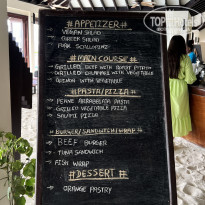 #APPETIZER
- VEGAN SALAD
- GREEK SALAD
- PORK
#MAIN COURSE
- GRILLED BEEF WITH ROAST POTATO
- GRILLED CALAMARI WITH VEGETABLE
- WITH VEGETABLE
#PASTA/PIZZA
- PENNE ARRABBIATA PASTA
- GRILLED VEGETABLE PIZZA
- SALAMI PIZZA
#BURGER/SANDWICH/WRAP
- BEEF BURGER
- TUNA SANDWICH
- FISH WRAP
#DESSERT
- ORANGE PASTRY